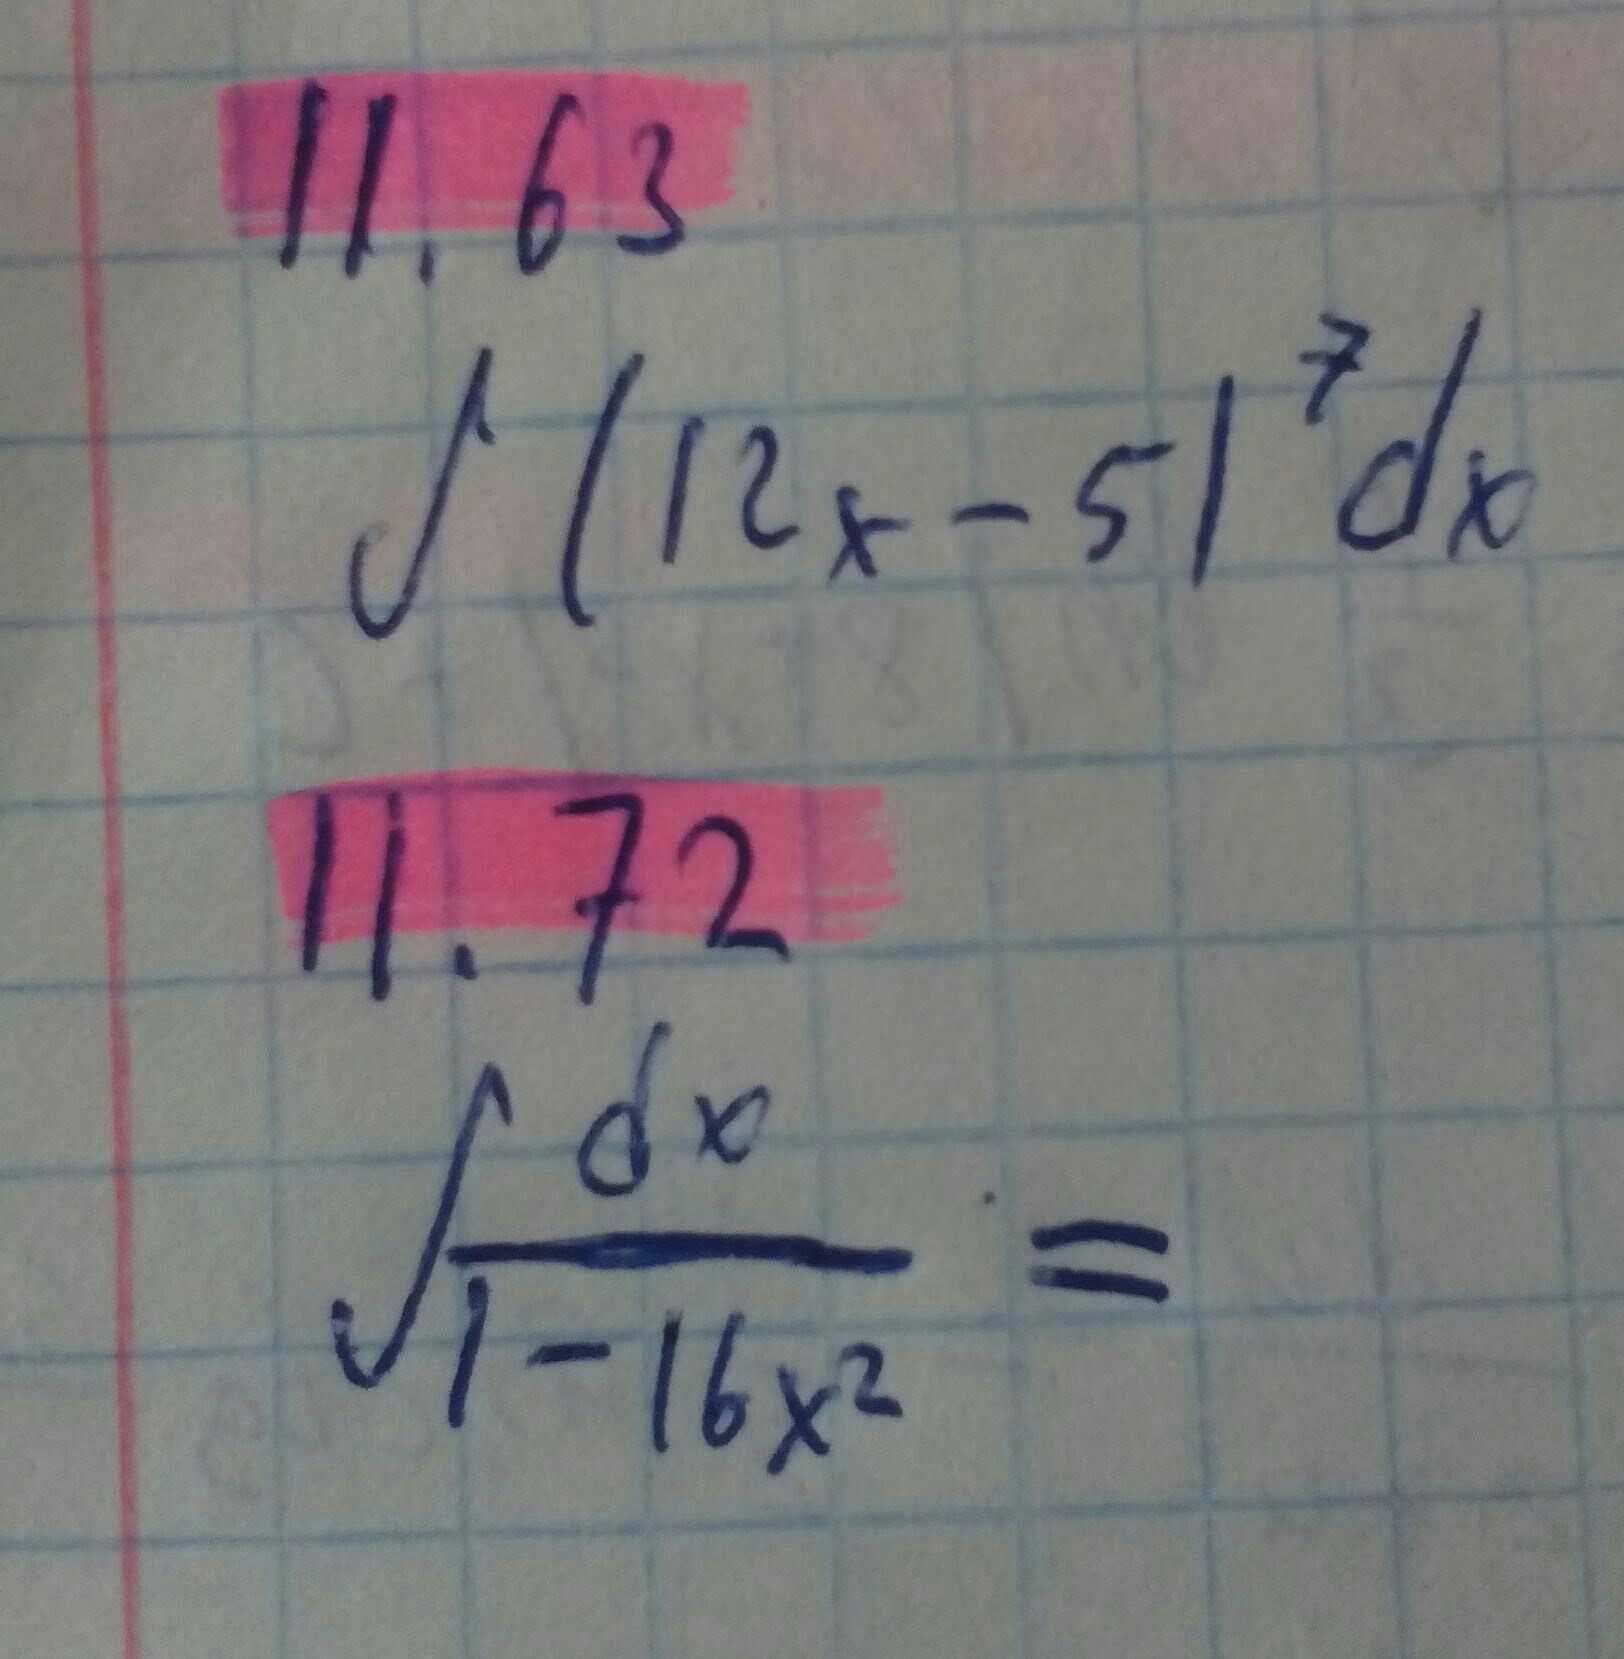 11.63
∫(12x-5)⁷dx
11.72
∫dx/1-16x² =